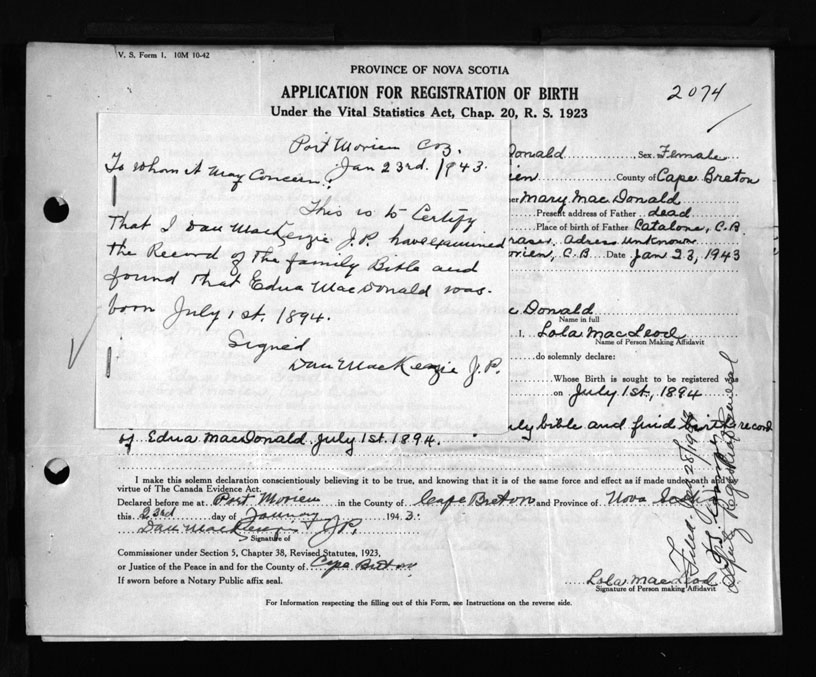 V. S. Form 1. 10M 10-42
PROVINCE OF NOVA SCOTIA
APPLICATION FOR REGISTRATION OF BIRTH
Under the Vital Statistics Act, Chap. 20, R. S. 1923
2074
Port Morien C.B.
Jan 23rd. 1943.
To whom it May Concern:
This is to Certify
That I Dan MacKenzie J.P. have examined
the Record of the family Bible and
found that Edna MacDonald was
born July 1st. 1894.
Signed
Dan MacKenzie J.P.
Donald Sex Female
ien County of Cape Breton
er Mary MacDonald
Present address of Father dead
Place of birth of Father Catalone, C.B.
Adress unknown
orien, C.B. Date Jan 23, 1943
c Donald
Name in full
I, Lola MacLeod
Name of Person Making Affidavit
do solemnly declare:
Whose Birth is sought to be registered was
on July 1st, 1894
ly bible and find birth record
of Edna MacDonald July 1st. 1894.
I make this solemn declaration conscientiously believing it to be true, and knowing that it is of the same force and effect as if made under oath and by
virtue of The Canada Evidence Act.
Declared before me at Port Morien in the County of Cape Breton and Province of Nova Scotia
this 23rd day of January 1943.
Dan MacKenzie J.P.
Signature of
Commissioner under Section 5, Chapter 38, Revised Statutes, 1923,
or Justice of the Peace in and for the County of Cape Breton
If sworn before a Notary Public affix seal.
Lola MacLeod
Signature of Person making Affidavit
For Information respecting the filling out of this Form, see Instructions on the reverse side.
Deputy Registrar General